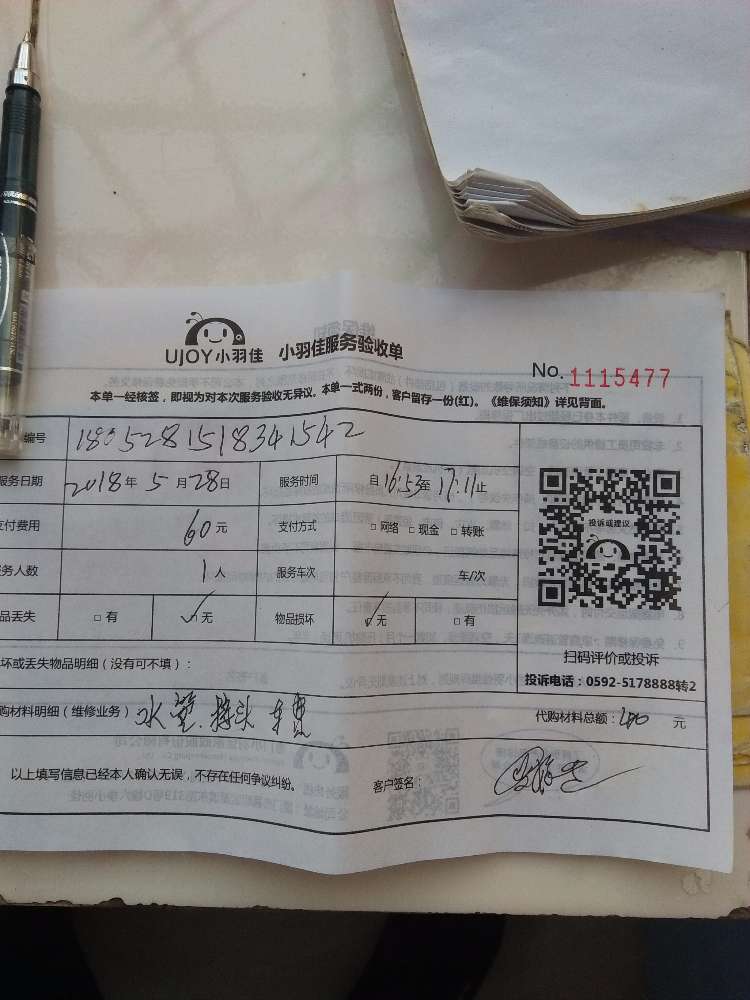 UJOY小羽佳 小羽佳服务验收单
No. 1115477
本单一经核签，即视为对本次服务验收无异议。本单一式两份，客户留存一份(红)。《维保须知》详见背面。
编号 1805281518341542
服务日期 2018年5月28日 服务时间 自16:53至17:11止
支付费用 60元 支付方式 □网络 □现金 □转账
服务人数 1人 服务车次 车/次
品丢失 □有 ✓无 物品损坏 ✓无 □有
投诉或建议
扫码评价或投诉
投诉电话：0592-5178888转2
坏或丢失物品明细（没有可不填）：
购材料明细（维修业务） 水管.接头 车费 代购材料总额： 元
以上填写信息已经本人确认无误，不存在任何争议纠纷。 客户签名：